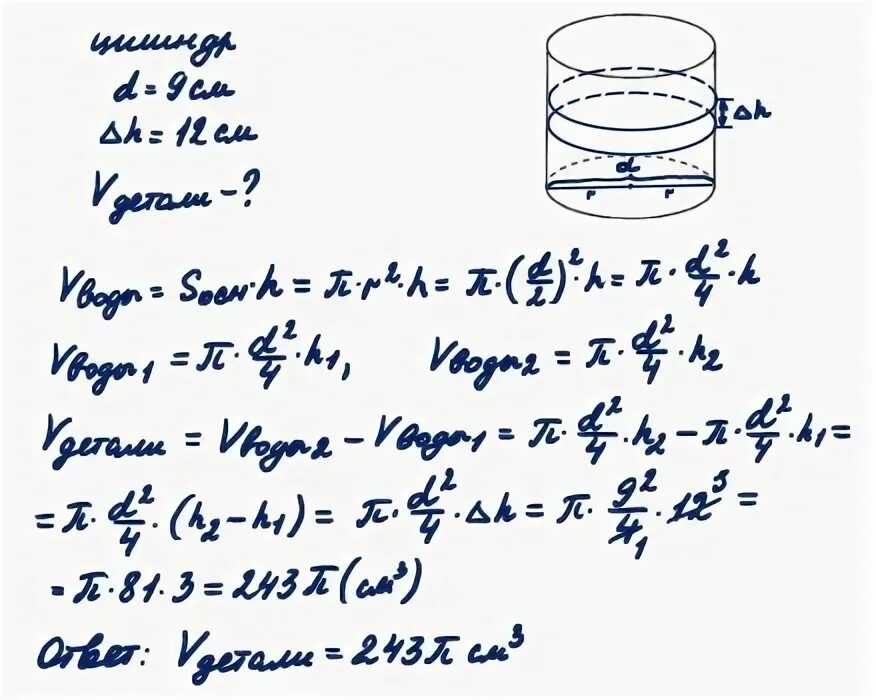 цилиндр
d = 9 см
Δh = 12 см
V детали - ?
Δh
d
r r
V воды = Sосн·h = π·r²·h = π·(d/2)²·h = π·d²/4·h
V воды1 = π·d²/4·h₁, V воды2 = π·d²/4·h₂
V детали = V воды2 - V воды1 = π·d²/4·h₂ - π·d²/4·h₁ =
= π·d²/4·(h₂-h₁) = π·d²/4·Δh = π·9²/4 1·12 3 =
= π·81·3 = 243π (см³)
Ответ: V детали = 243π см³